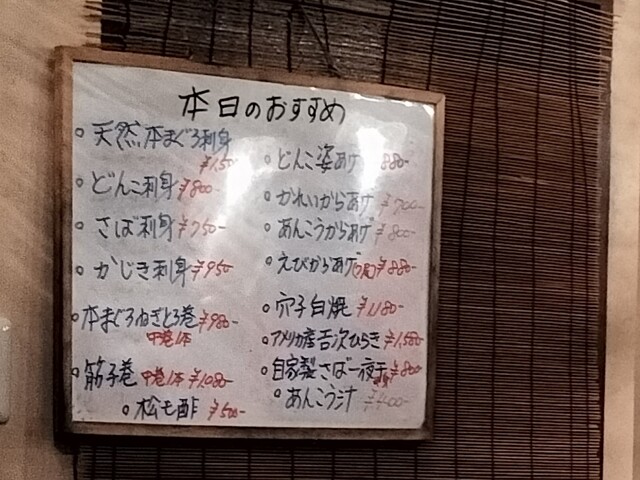 本日のおすすめ
○ 天然本まぐろ刺身
○ どんこ刺身 ¥800-
○ さば刺身 ¥750-
○ かじき刺身 ¥950
○ 本まぐろねぎとろ巻 ¥980-
中巻1本
○ 筋子巻 中巻1本 ¥1080-
○ 松も酢 ¥500-
○ どんこ姿あげ 880-
○ かれいからあげ ¥700-
○ あんこうからあげ ¥800-
○ えびからあげ ¥880-
○ 穴子白焼 ¥1,180-
○ アメリカ産吉次ひらき ¥1,580-
○ 自家製さば一夜干 ¥800-
○ あんこう汁 ¥400-